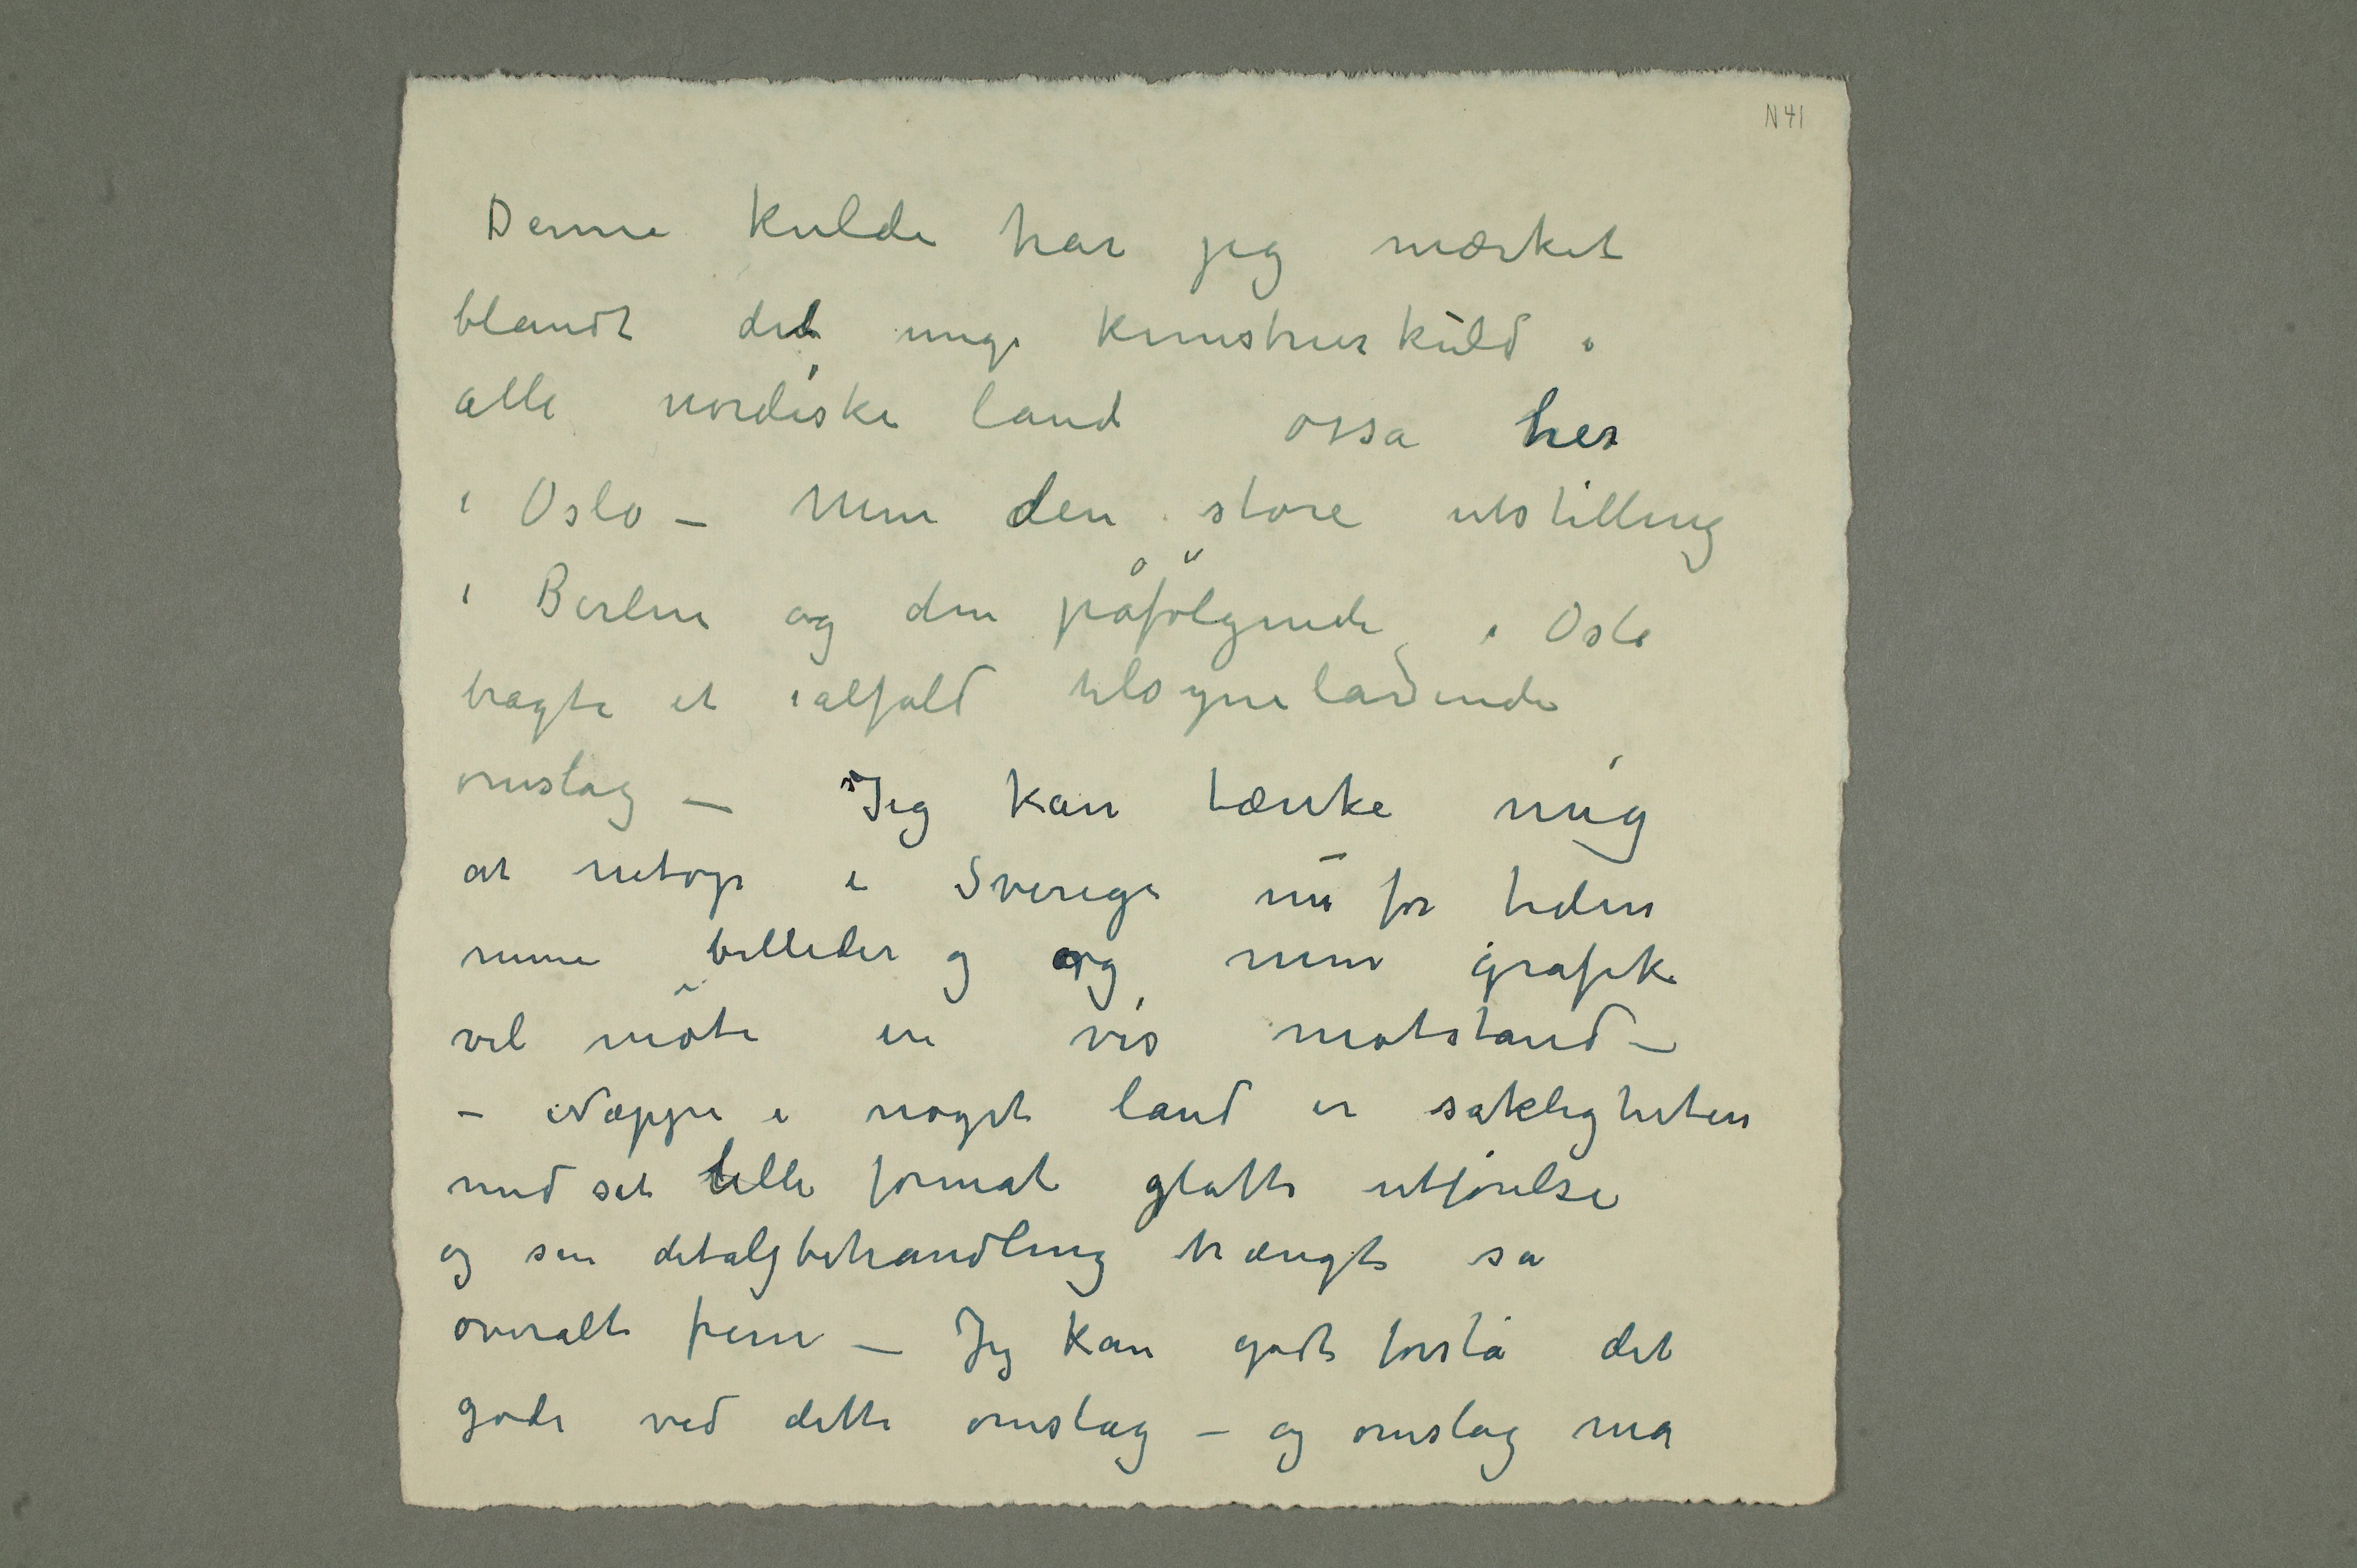 N 41
Denne kulde har jeg mærket
blandt det unge kunstnerkuld i
alle nordiske land ossa her
i Oslo – Min den store utstilling
i Berlin og den påfølgende i Oslo
bragte et ialfald tilsynelatende
omslag – Jeg kan tænke mig
at netop i Sverige nu for tiden
mine billeder og og min grafik
vil möte en vis motstand –
– Neppe i noget land er sakligheten
med sit lille format glatte utførelse
og sin detaljbehandling trængt så
overalt frem – Jeg kan godt forstå det
gode ved dette omslag – og omslag må